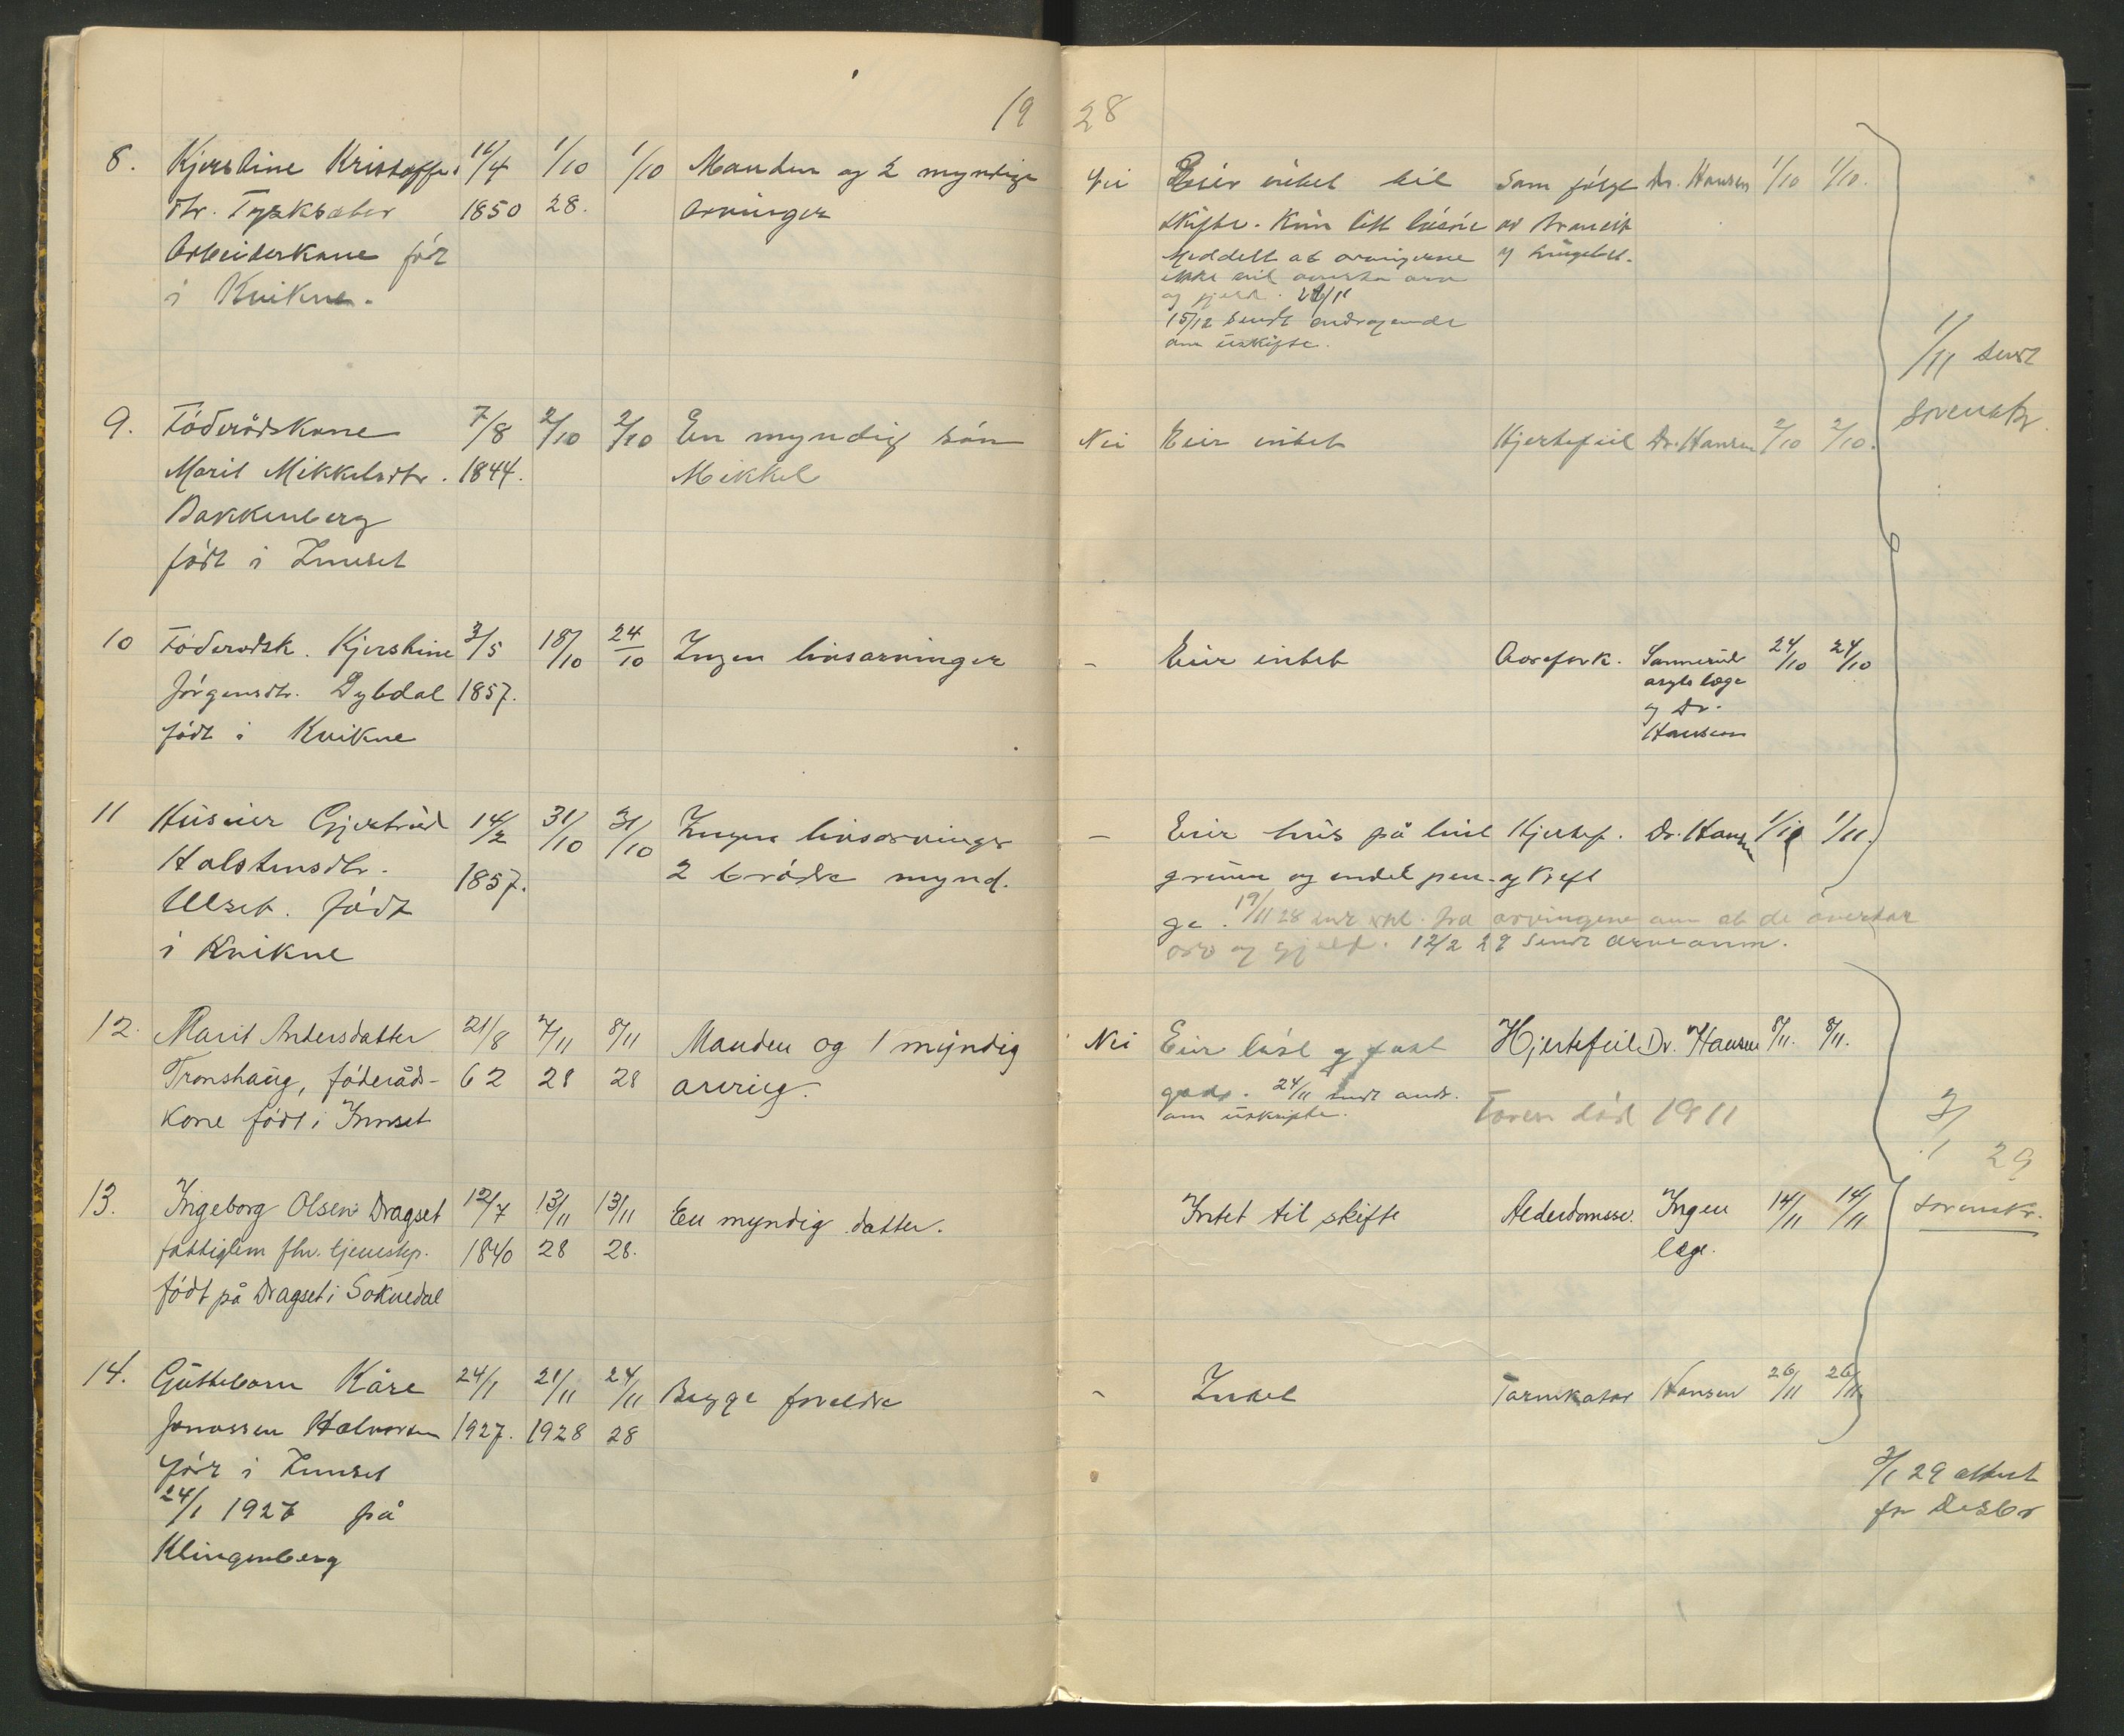 19 28
8. Kjerstine Kristoffers 11/4 1/10 1/10 Manden og 2 myndige Nei Eier intet til Som følge Dr. Hansen 1/10 1/10.
dtr. 1850 28. arvinger skifte. Kun litt løsøre av
Arbeiderkone født Meddelt at arvingerne og lungebet.
i Kvikne. ikke vil overta arv
og gjeld. /11
15/12 sendt andragende
om uskifte.
1/11 sendt
sorenskr.
9. Föderådskone 7/8 2/10 2/10 En myndig sön Nei Eier intet Hjertefeil Dr. Hansen 2/10 2/10.
Marit Mikkelsdtr. 1844. Mikkel
Bakkenberg
födt i Innset
10 Föderådsk. Kjerstine 3/5 18/10 24/10 Ingen livsarvinger - Eier intet Aarefork. asyls læge 24/10 24/10
Jörgensdtr. Dybdal 1857. og Dr.
födt i Kvikne Hansen
11 Huseier Gjertrud 14/2 31/10 31/10 Ingen livsarvinger - Eier hus på leiet Hjertef. Dr. Hansen 1/11 1/11.
Halstensdtr. 1857. 2 brödre mynd. grunn og endel pen- og kreft
Ulset. födt ge. 19/11 28 fra arvingene om at de overtar
i Kvikne arv og gjeld. 12/2 29 sendt arveanm.
12. Marit Andersdatter 21/8 7/11 8/11 Manden og 1 myndig Nei Eier löst og fast Hjertefeil Dr. Hansen 8/11. 8/11.
Tronshaug, föderåds- 62 28 28 arving. gods. 24/11 sendt andr.
kone födt i Innset om uskifte. död 1911
29
sorenskr.
13. Ingeborg Olsen Dragset 12/7 13/11 13/11 En myndig datter. Intet til skifte Alderdomssv. Ingen 14/11 14/11
fattiglem fhv. tjenestep. 1840 28 28. læge.
födt på Dragset i Soknedal
14. Guttebarn Kåre 24/1 21/11 24/11 Begge foreldre - Intet Tarmkatar Hansen 26/11 26/11
Jonassen Halvorsen 1927. 1928 28
födt i Innset
24/1 1927 på
Klingenberg
3/1 29 attest
for Desbr